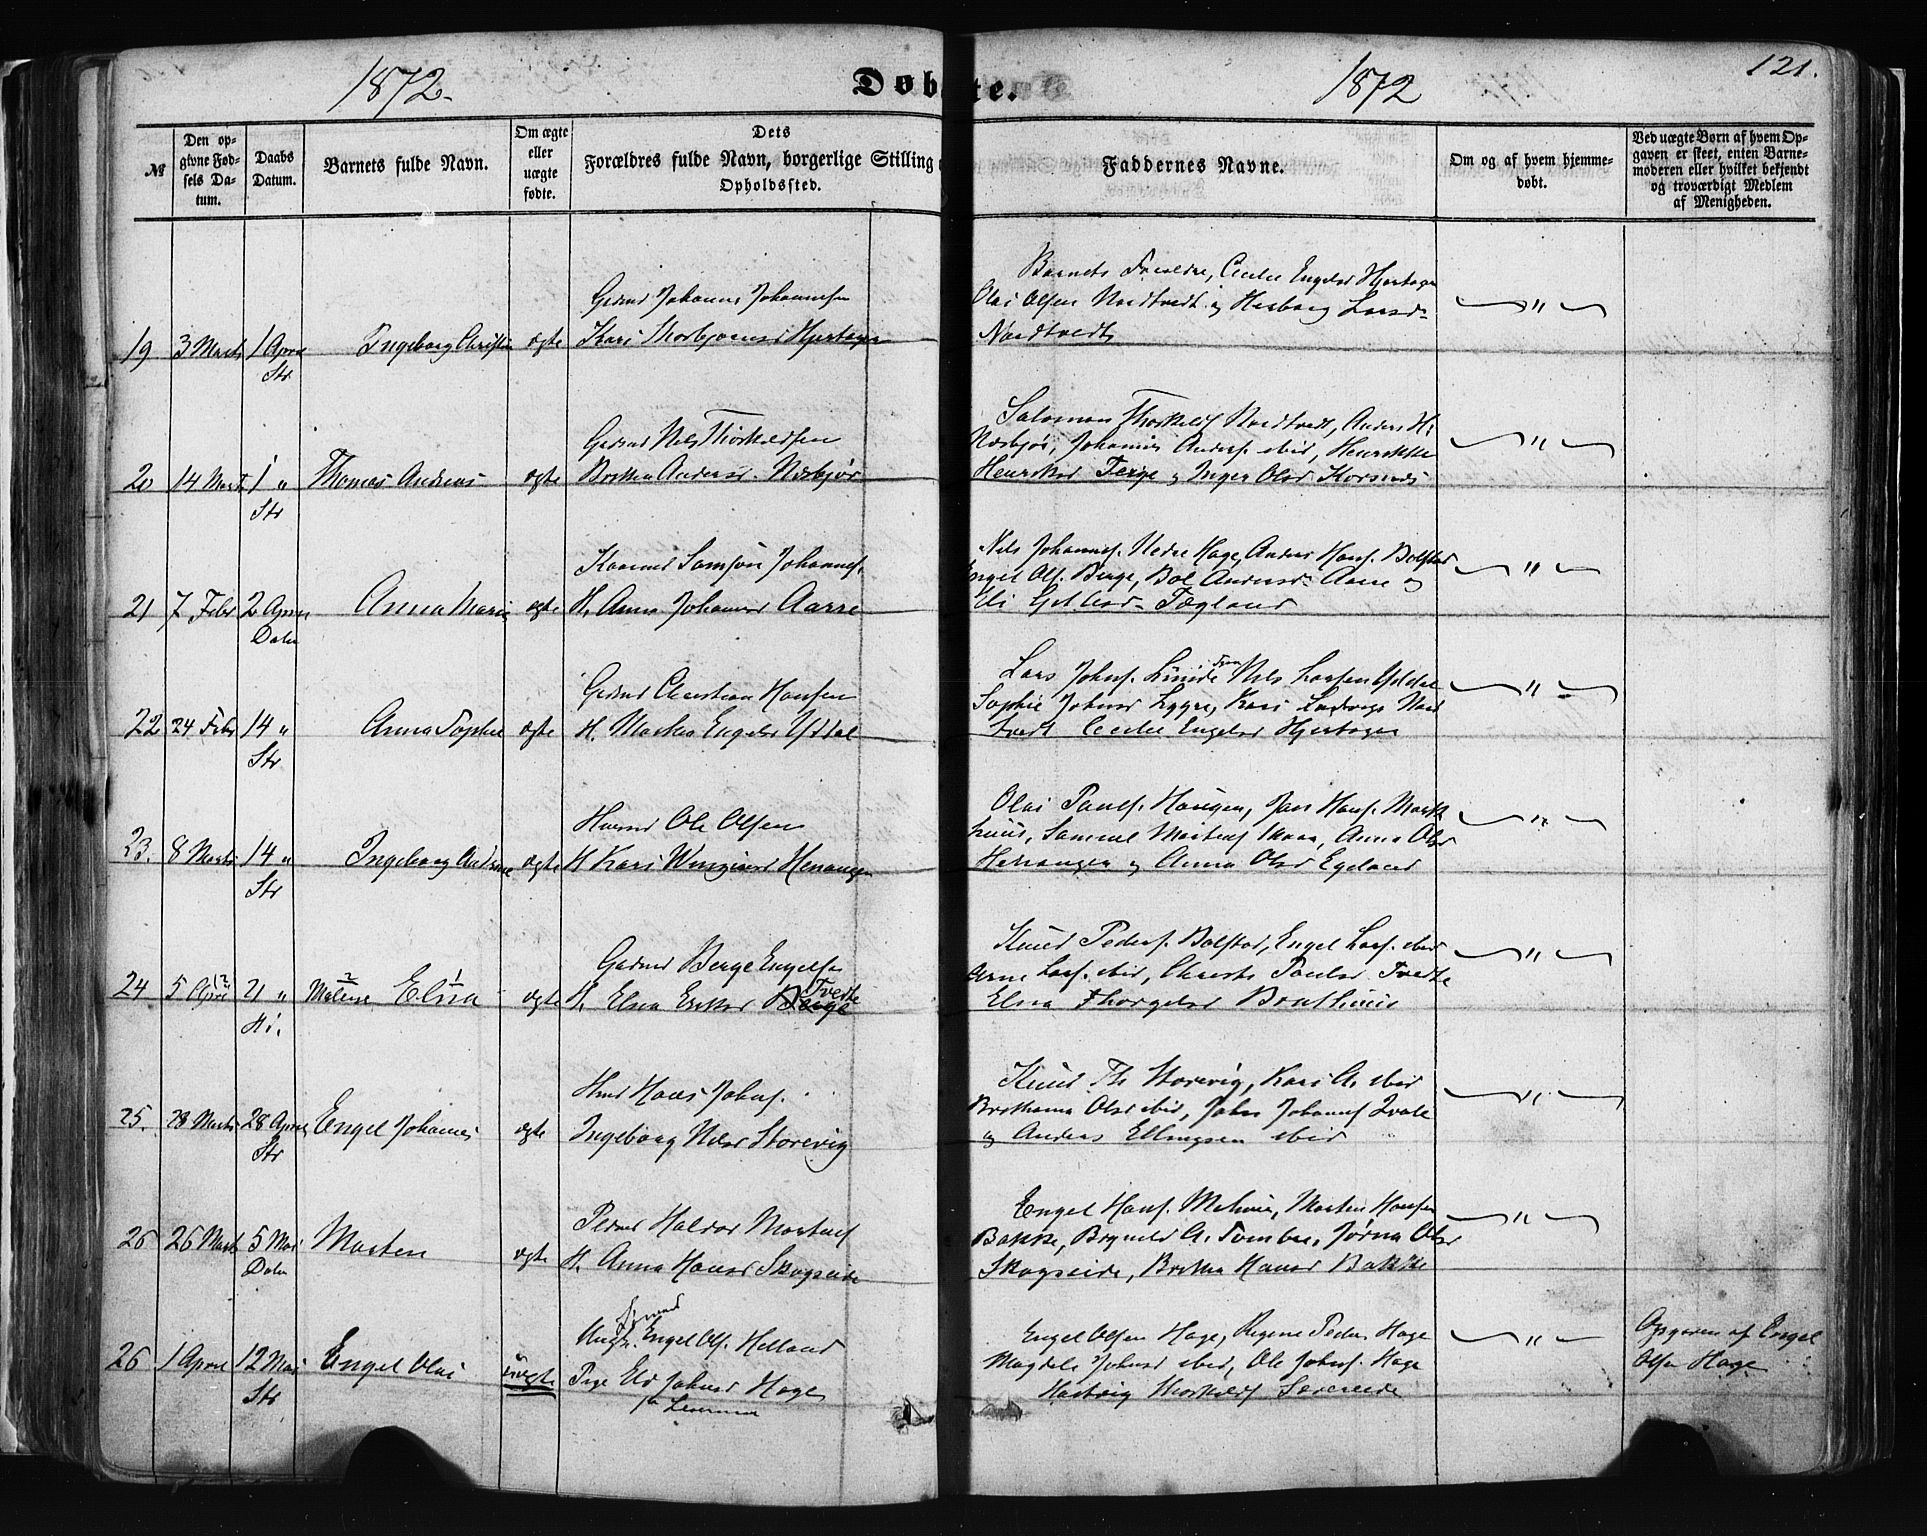 1872.
Døb te.
1872
121.
№
Den op-
givne Fød-
sels Da-
tum.
Daabs
Datum.
Barnets fulde Navn.
Om ægte
eller
uægte
fødte.
Dets
Forældres fulde Navn, borgerlige Stilling
Opholdssted.
Faddernes Navne.
Om og af hvem hjemme-
døbt.
Ved uægte Børn af hvem Op-
gaven er skeet, enten Barne-
moderen eller hvilket bekjendt
og troværdigt Medlem
af Menigheden.
19 3 Marts 1 April
Str
Ingeborg Christin
ægte
Gdmd Johannes Johannesen
Kari Thorbjørnsd Hjertager
Barnets Forældre, Cecilie Engelsd Hjertager
Olai Olsen Nordtvedt og Herborg Larsd
Nordtvedt
〃
20 14 Marts 1 〃
Str
Thomas Andreas
ægte
Gdmd Nils Thorkildsen
Britha Andersd. Nesbjør
Salomon Thorkilds Nordtvedt, Anders H.
Nesbjør, Johannes Anders. ibid, Henrikke
Henriksd Teige og Inger Olsd Korsnes
〃
21 7 Febr 2 April
Dale
Anna Marie
ægte
Kaarmd Samson Johannes.
H. Anna Johannesd Aarre
Nils Johannes. Nedre Hage, Anders Hans. Bolstad
Engel Ols. Berge, Andersd Aarre og
〃
22 24 Febr 14 〃
Str
Anna Sophie
ægte
Gdmd Christian Hansen
H. Martha Engelsd Yddal
Lars Johns. Nils Larsen Yddal
Sophie Johnsd Lygre, Kari Nord
tvedt Cecilie Engelsd Hjertager
〃
23. 8 Marts 14 〃
Str
Ingeborg Andrine
ægte
Husmd Ole Olsen
H Kari Henanger
Olai Pauls. Haugen, Jan Hans. Mark
huus, Samuel Mortens Anna Olsd
Henanger og Anna Olsd Egeland
〃
24 5 April 21 〃
Hi.
Malene Elna
ægte
Gdmd Berge Engelsen
H. Elna Eriksd Berge Tvedte
Knud Peders. Bolstad, Engel Lars. ibid
Arne Lars. ibid, Christi Paulsd Tvedte
Elna Thorgelsd Brathuus
〃
25. 28 Marts 28 April
Str
Engel Johannes
ægte
Hmd Hans Johns.
Ingeborg Nilsd Storevig
Knud Th Storevig, Kari A. ibid
Brithanna Olsd ibid, John Johannes Qvale
og Anders Ellingsen ibid
〃
26 26 Marts 5 Mai
Dale
Morten
ægte
Pldmd Haldor Mortens
H. Anna Hansd Skogseide
Engel Hans. Morten Hansen
Bakke, Brynild A. Tombre, Jørna Olsd
Skogseide, Britha Hansd Bakke
〃
26 1 April 12 Mai
Str
Engel Olai
uægte
Ungk. Engel Ols. Helland
Pige Eli Johnsd Hage
Engel Olsen Hage, Regine Peders Hage
Magdeli Johnsd ibid, Ole Johns. Hage
Hartvig Thorkilds Sævereide
〃
Opgaven af Engel
Olsen Hage